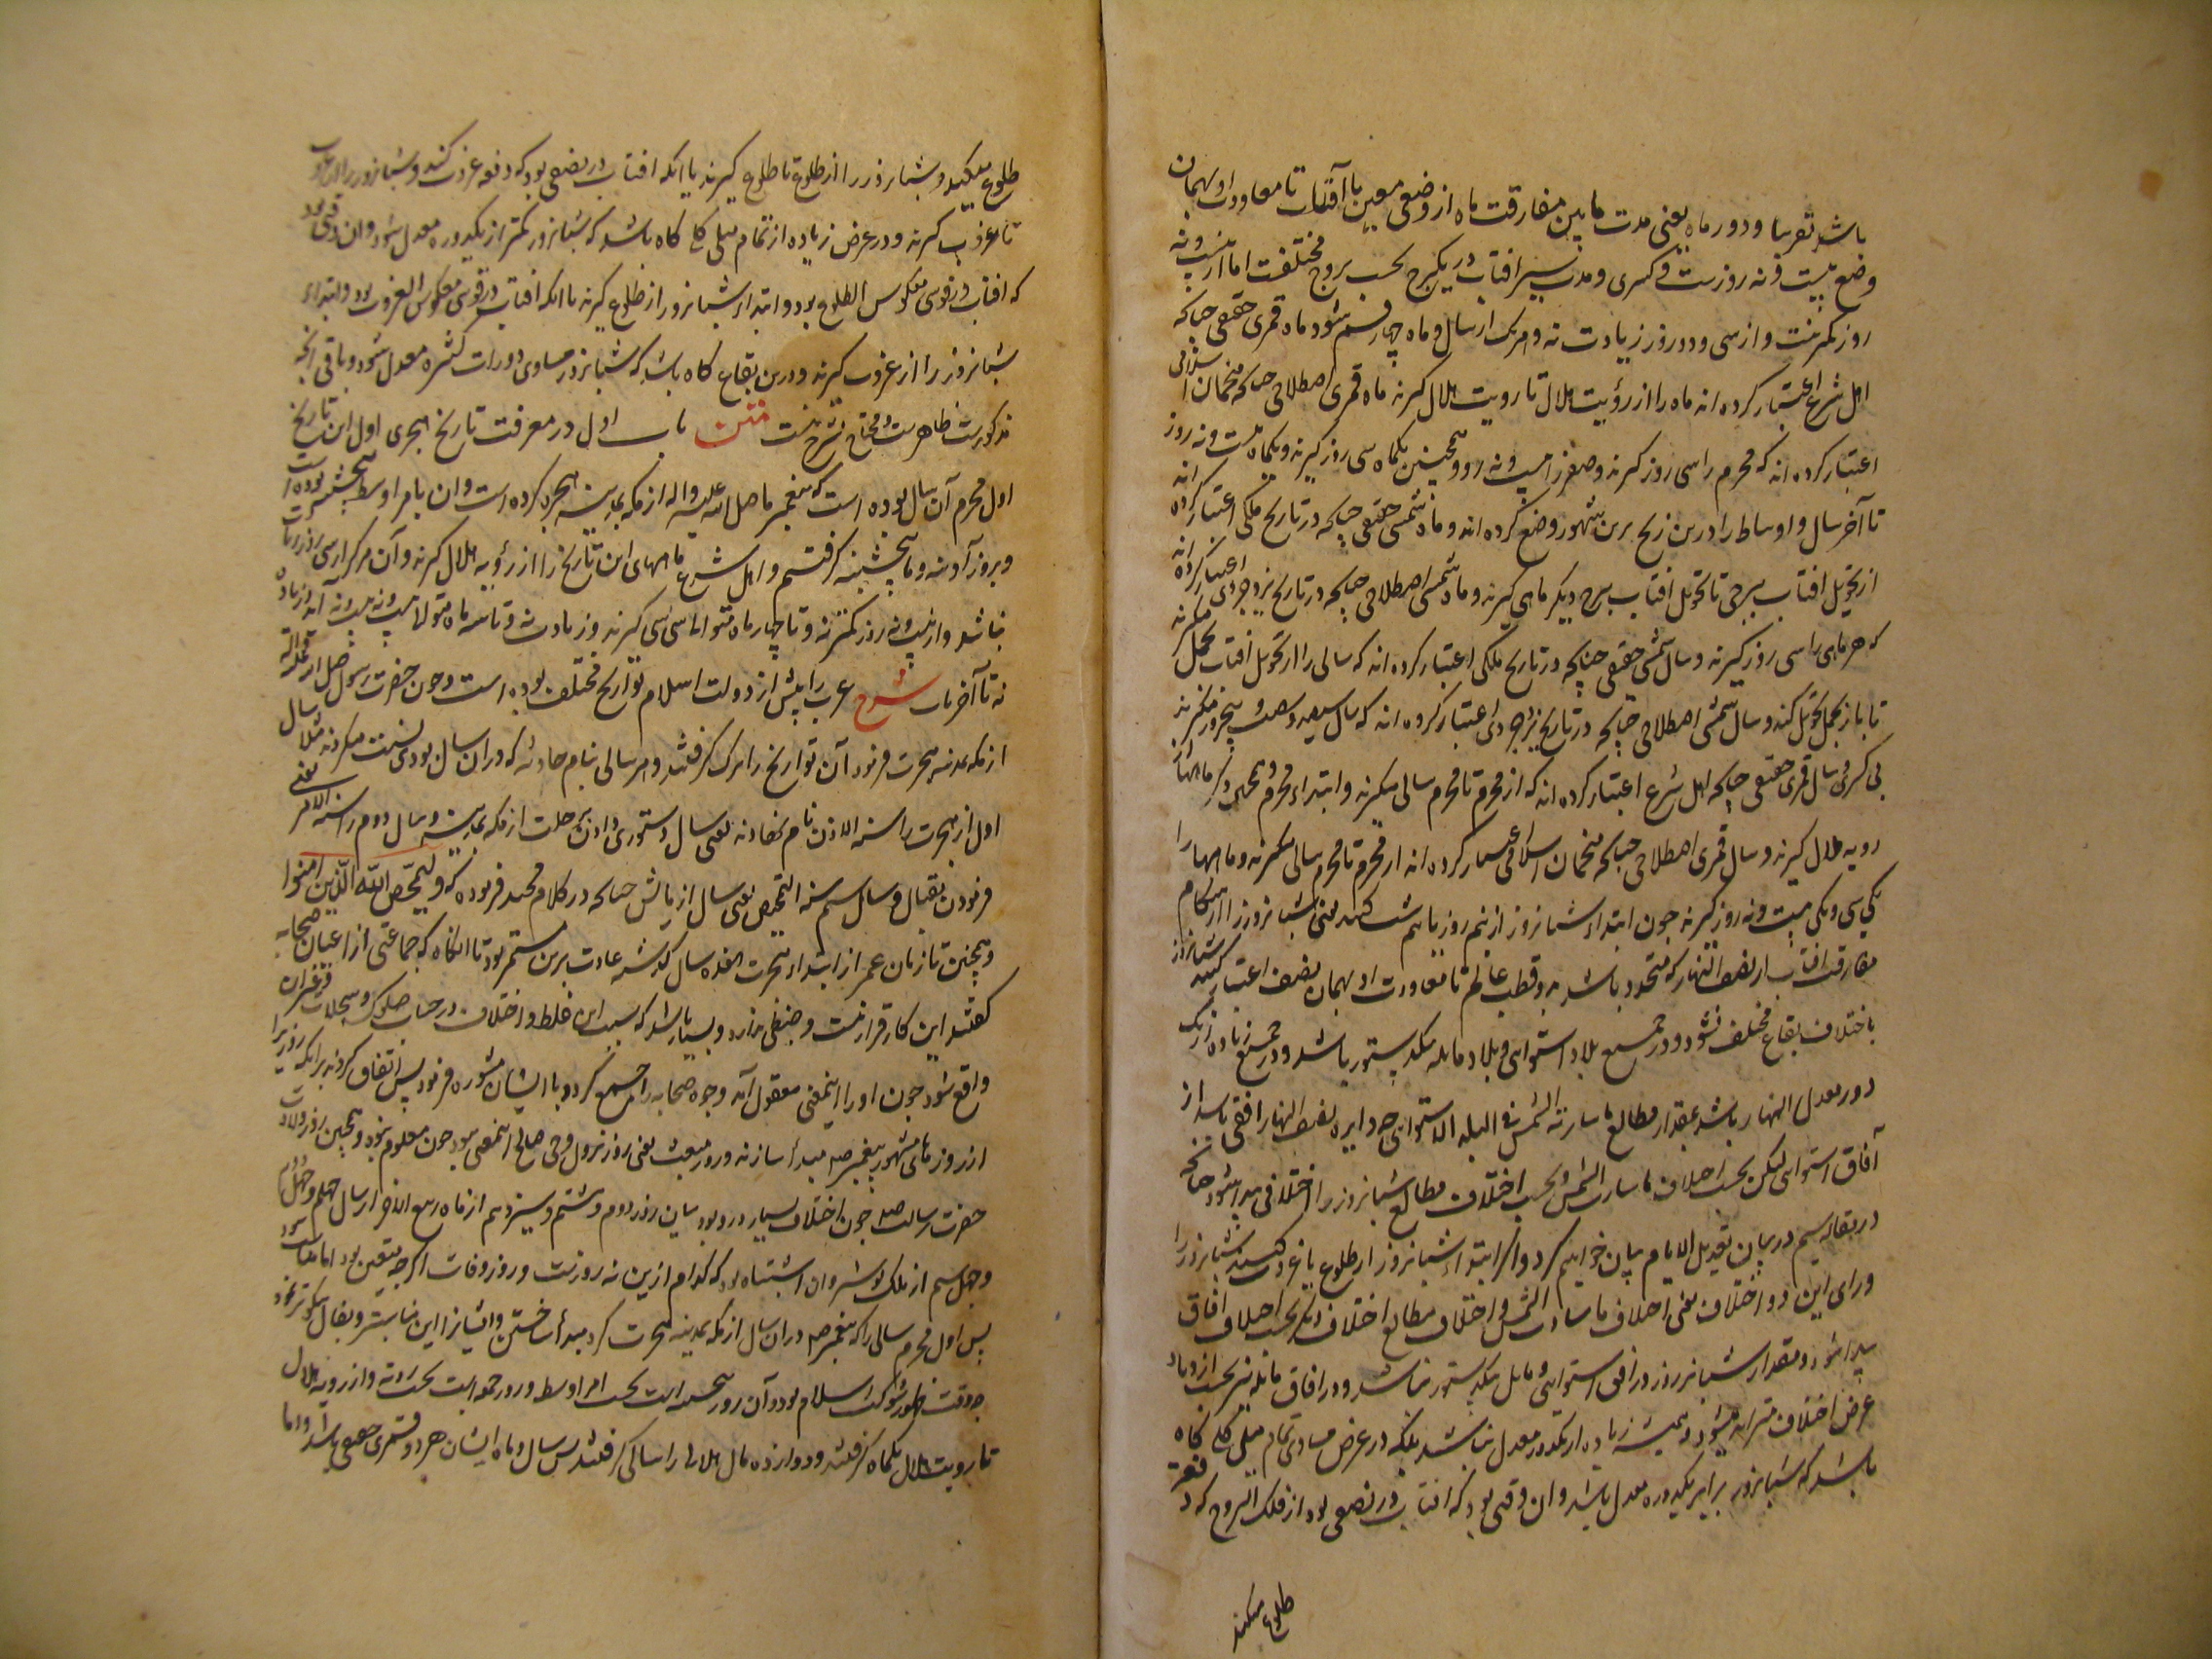 باشد تقریبا و دور ماه یعنی مدت مابین مفارقت ماه از وضعی معین با آفتاب تا معاودت او بهمان
وضع بیست و نه روزست و کسری و مدت سیر افتاب در یکبرج بحسب بروج مختلفست اما از بیست و نه
روز کمتر نیست و از سی و دو روز زیادت نه و هر یک از سال و ماه چهار قسم شود ماه قمری حقیقی چنانکه
اهل شرع اعتبار کرده اند ماه را از رؤیت هلال تا رویت هلال کیرند ماه قمری اصطلاحی چنانکه منجمان اسلامی
اعتبار کرده اند که محرم را سی روز کیرند و صفر را بیست و نه روز و همچنین یکماه سی روز کیرند و یکماه بیست و نه روز
تا آخر سال و اوساط را درین زیج برین شهور وضع کرده اند و ماه شمسی حقیقی چنانچه در تاریخ ملکی اعتبار کرده اند
از تحویل افتاب ببرجی تا تحویل افتاب ببرج دیگر ماهی کیرند و ماه شمسی اصطلاحی چنانچه در تاریخ یزدجردی اعتبار کرده اند
که هر ماهی را سی روز کیرند و سال شمسی حقیقی چنانچه در تاریخ ملکی اعتبار کرده اند که سالی را از تحویل افتاب بحمل میکیرند
تا باز بحمل تحویل کند و سال شمسی اصطلاحی چنانچه در تاریخ یزدجردی اعتبار کرده اند که سال سیصد و شصت و پنجروز میکیرند
بی کسری و سال قمری حقیقی چنانچه اهل شرع اعتبار کرده اند که از محرم تا محرم سالی میکیرند و ابتداء محرم و همچنین دیگر ماهها از
رویه هلال کیرند و سال قمری اصطلاحی چنانکه منجمان اسلامی اعتبار کرده اند از محرم تا محرم سالی میکیرند و ماهها را
یکی سی و یکی بیست و نه روز کیرند چون ابتداء شبانروز از نیم روز یا نیم شب کنند یعنی شبانروز را از هنکام
مفارقت افتاب از نصف النهار که متحدد باشد بدو قطب عالم تا معاودت او بهمان نصف اعتبار کنند شبانروز
باختلاف بقاع مختلف نشود و در جمیع بلاد استوایی و بلاد مایله یکدستور باشد و در جمیع زیاده از یک
دور معدل النهار باشد بمقدار مطالع ما سارته الشمس فی البلد الاستوائی چه دایره نصف النهار افقی باشد از
آفاق استوایی لیکن بحسب اختلاف ما سارت الشمس و بحسب اختلاف مطالع شبانروز را اختلافی پیدا شود چنانچه
در مقاله سیم در بیان تعدیل الایام بیان خواهیم کرد و اکر ابتداء شبانروز از طلوع یا غروب کنند شبانروز را
ورای این دو اختلاف یعنی اختلاف ما سارت الشمس و اختلاف مطالع اختلاف دیگر بحسب اختلاف افاق
پیدا شود و مقدار شبانروز در افق استوایی و مایل یکدستور نباشد و در افاق مایله نیز بحسب ازدیاد
عرض اختلاف متزاید میشود و همیشه زیاده از یکدور معدل نباشد بلکه در عرض مساوی تمام میل کلی کاه
باشد که شبانروز برابر یکدوره معدل باشد و ان وقتی بود که افتاب در نصفی بود از فلک البروج که دفعة
طلوع میکند
طلوع میکند و شبانروز را از طلوع تا طلوع کیرند یا انکه افتاب در نصفی بود که دفعه غروب کند و شبانروز را از غروب
تا غروب کیرند و در عرض زیاده از تمام میل کلی کاه باشد که شبانروز کمتر از یکدوره معدل شود و ان وقتی بود
که افتاب در قوسی معکوس الطلوع بود و ابتداء شبانروز از طلوع کیرند یا انکه افتاب در قوسی معکوس الغروب بود و ابتداء
شبانروز را از غروب کیرند و درین بقاع کاه باشد که شبانروز مساوی دورات کثیره معدل شود و باقی آنچه
مذکورست ظاهرست و محتاج بشرح نیست متن باب اول در معرفت تاریخ هجری اول این تاریخ
اول محرم آن سال بوده است که پیغمبر ما صلی الله علیه واله از مکه بمدینه هجره کرده است و ان بامر اوسط پنجشنبه بوده است
و بروز آدینه و ما پنجشنبه کرفتیم و اهل شرع ماههای این تاریخ را از رؤیه هلال کیرند و آن هرکز از سی روز زیادت
نباشد و از بیست و نه روز کمتر نه و تا چهار ماه متوالی سی سی کیرند و زیادت نه و تا سه ماه متوالی بیست و نه بیست و نه آید زیاده
نه تا آخر باب شرح عرب را پیش از دولت اسلام تواریخ مختلف بوده است و چون حضرت رسول صلی الله علیه واله
از مکه بمدینه هجرت فرمود آن تواریخ را ترک کرفتند و هر سالی بنام حادثه که در ان سال بودی نسبت میکردند مثلا سال
اول از هجرت را سنه الاذن نام نهادند یعنی سال دستوری دادن برحلت از مکه بمدینه و سال دوم را سنه الامر یعنی
فرمودن بقتال و سال سیم سنه التمحیص یعنی سال ازمایش چنانچه در کلام مجید فرموده که و لیمحّص اللّه الّذین امنوا
و همچنین تا زمان عمر از ابتداء هجرت هفده سال کذشته عادت برین مستمر بود تا انکاه که جماعتی از اعیان صحابه
کفتند این کار قرار نیست و ضبطی ندارد و بسیار باشد که بسبب این غلط و اختلاف در حساب صکوک و سجلات و غیران
واقع شود چون او را اینمعنی معقول آمد وجوه صحابه را جمع کرد و با ایشان مشوره فرمود پس اتفاق کردند برانکه روزی را
از روزهای مشهور پیغمبر ص مبدأ سازند و روز مبعث یعنی روز نزول وحی صالح اینمعنی نبود چون معلوم نبود و همچنین روز ولادت
حضرت رسالت ص چون اختلاف بسیار در و بود میان روز دوم و هشتم و سیزدهم از ماه ربیع الاخر از سال چهلم و چهل
و چهل سیم از ملک نوشیروان اشتباه بود که کدام ازین سه روزست و روز وفات اکرچه متعین بود اما مناسب نبود
پس اول محرم سالی را که پیغمبر ص در ان سال از مکه بمدینه هجرت کرد مبدأ ساختن و ایشانرا این مناسبتر و بفال نیکوتر نمود
چه وقت ظهور شوکت اسلام بود و آن روز پنجشنبه است بحسب امر اوسط و روز جمعه است بحسب رؤیه و از رویه هلال
تا رویت هلال یکماه کرفتند و دوازده ماه هلالی را سالی کرفتند پس سال و ماه ایشان هر دو قمری حقیقی باشد و اما